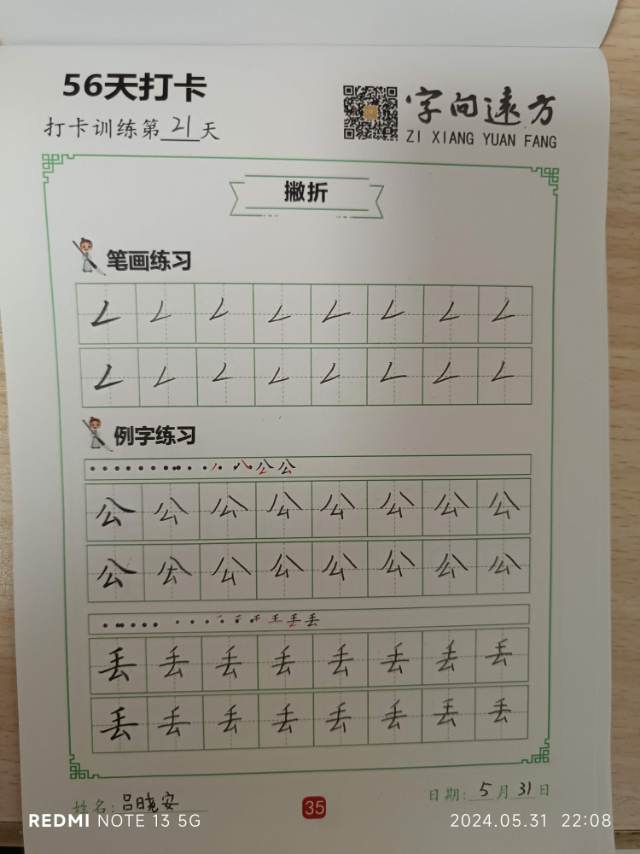 56天打卡
字向远方
打卡训练第21天
ZI XIANG YUAN FANG
撇折
笔画练习
𠃋 𠃋 𠃋 𠃋 𠃋 𠃋 𠃋 𠃋
𠃋 𠃋 𠃋 𠃋 𠃋 𠃋 𠃋 𠃋
例字练习
公 公 公 公 公 公 公 公
公 公 公 公 公 公 公 公
丢 丢 丢 丢 丢 丢 丢 丢
丢 丢 丢 丢 丢 丢 丢 丢
姓名:吕晓安
35
日期:5月31日
REDMI NOTE 13 5G
2024.05.31 22:08